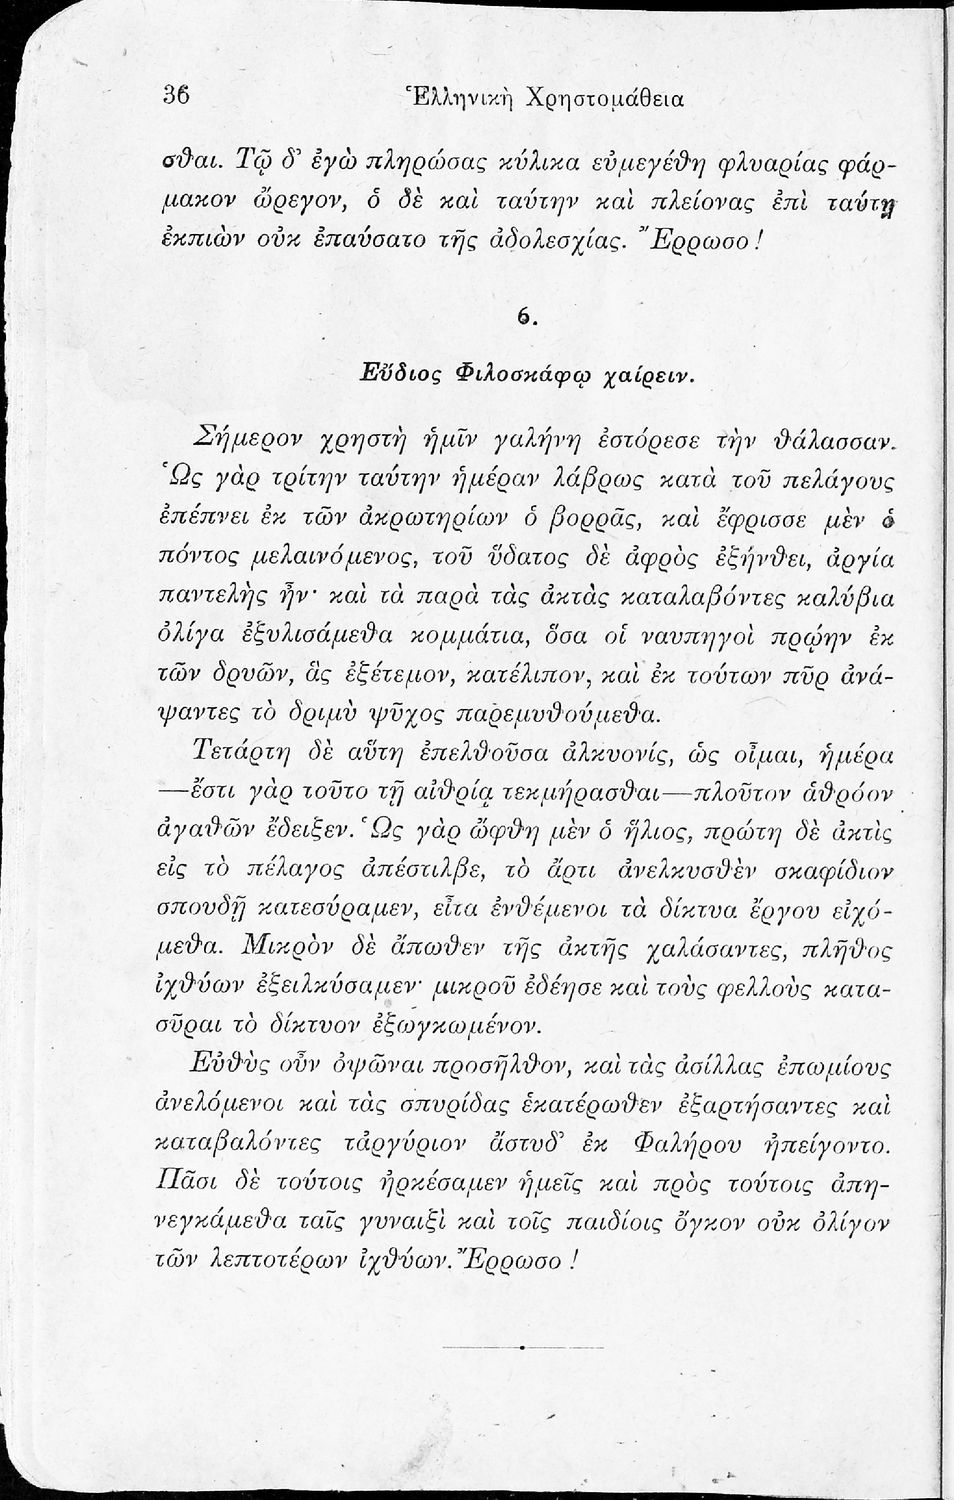 36 Ἑλληνικὴ Χρηστομάθεια
σθαι. Τῷ δ’ ἐγὼ πληρώσας κύλικα εὐμεγέθη φλυαρίας φάρ-
μακον ὤρεγον, ὁ δὲ καὶ ταύτην καὶ πλείονας ἐπὶ ταύτῃ
ἐκπιὼν οὐκ ἐπαύσατο τῆς ἀδολεσχίας. Ἔρρωσο!
6.
Εὔδιος Φιλοσκάφῳ χαίρειν.
Σήμερον χρηστὴ ἡμῖν γαλήνη ἐστόρεσε τὴν θάλασσαν.
Ὡς γὰρ τρίτην ταύτην ἡμέραν λάβρως κατὰ τοῦ πελάγους
ἐπέπνει ἐκ τῶν ἀκρωτηρίων ὁ βορρᾶς, καὶ ἔφρισσε μὲν ὁ
πόντος μελαινόμενος, τοῦ ὕδατος δὲ ἀφρὸς ἐξήνθει, ἀργία
παντελὴς ἦν· καὶ τὰ παρὰ τὰς ἀκτὰς καταλαβόντες καλύβια
ὀλίγα ἐξυλισάμεθα κομμάτια, ὅσα οἱ ναυπηγοὶ πρῴην ἐκ
τῶν δρυῶν, ἃς ἐξέτεμον, κατέλιπον, καὶ ἐκ τούτων πῦρ ἀνά-
ψαντες τὸ δριμὺ ψῦχος παρεμυθούμεθα.
Τετάρτη δὲ αὕτη ἐπελθοῦσα ἀλκυονίς, ὡς οἶμαι, ἡμέρα
—ἔστι γὰρ τοῦτο τῇ αἰθρίᾳ τεκμήρασθαι—πλοῦτον ἀθρόον
ἀγαθῶν ἔδειξεν. Ὡς γὰρ ὤφθη μὲν ὁ ἥλιος, πρώτη δὲ ἀκτὶς
εἰς τὸ πέλαγος ἀπέστιλβε, τὸ ἄρτι ἀνελκυσθὲν σκαφίδιον
σπουδῇ κατεσύραμεν, εἶτα ἐνθέμενοι τὰ δίκτυα ἔργου εἰχό-
μεθα. Μικρὸν δὲ ἄπωθεν τῆς ἀκτῆς χαλάσαντες, πλῆθος
ἰχθύων ἐξειλκύσαμεν· μικροῦ ἐδέησε καὶ τοὺς φελλοὺς κατα-
σῦραι τὸ δίκτυον ἐξωγκωμένον.
Εὐθὺς οὖν ὀψῶναι προσῆλθον, καὶ τὰς ἀσίλλας ἐπωμίους
ἀνελόμενοι καὶ τὰς σπυρίδας ἑκατέρωθεν ἐξαρτήσαντες καὶ
καταβαλόντες τἀργύριον ἄστυδ’ ἐκ Φαλήρου ἠπείγοντο.
Πᾶσι δὲ τούτοις ἠρκέσαμεν ἡμεῖς καὶ πρὸς τούτοις ἀπη-
νεγκάμεθα ταῖς γυναιξὶ καὶ τοῖς παιδίοις ὄγκον οὐκ ὀλίγον
τῶν λεπτοτέρων ἰχθύων. Ἔρρωσο!